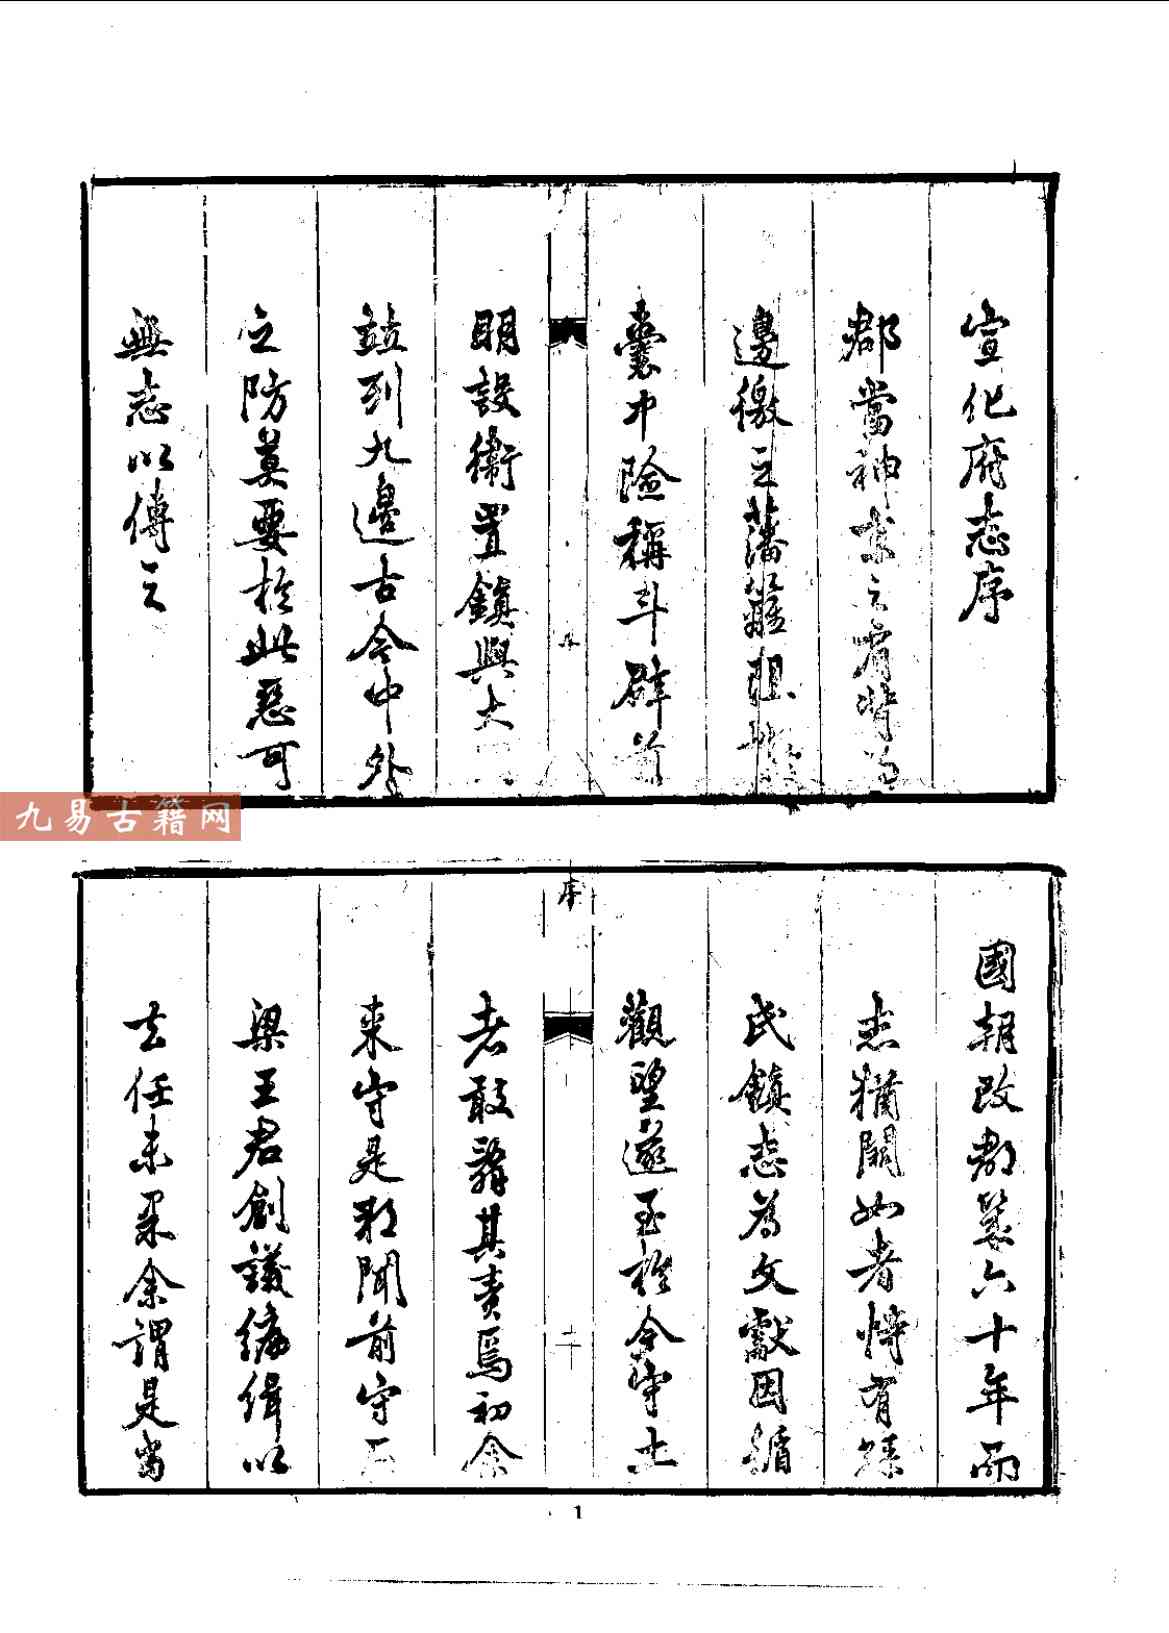 宣化府志序
郡當神京之右背為
邊徼之藩籬阻
囊中險稱斗辟前
明設衛置鎮與大
竝列九邊古今中外
之防莫要於此惡可
無志以傳之
序
國朝改郡葢六十年而
志猶闕如者恃有
氏鎮志為文獻因循
觀望遂至於今守土
者敢辭其責焉初余
來守是郡聞前守
梁王君創議編緝以
去任未果余謂是當
序
二
1
九易古籍网